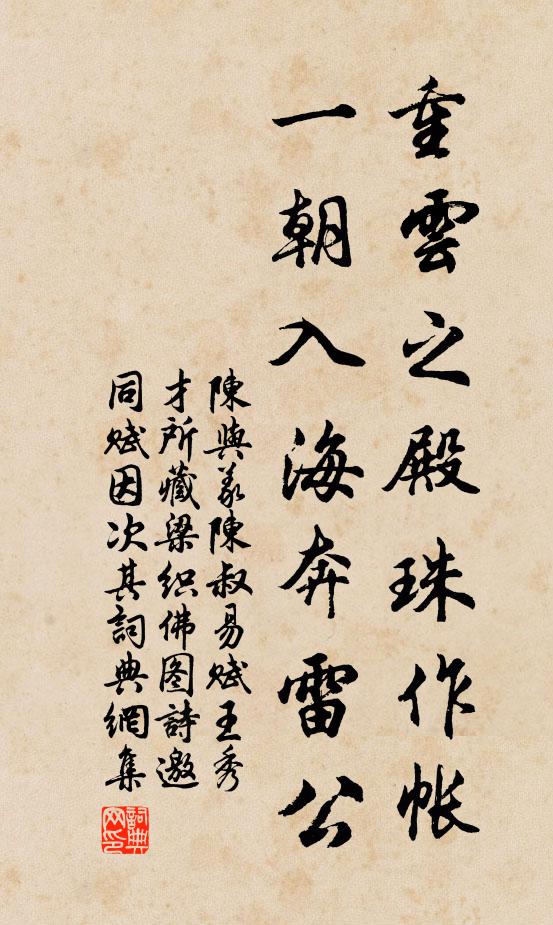 重雲之殿珠作帳
一朝入海奔雷公
陳與義陳叔易賦王秀
才所藏梁织佛图詩邀
同赋因次其詞典網集
詞典
网印